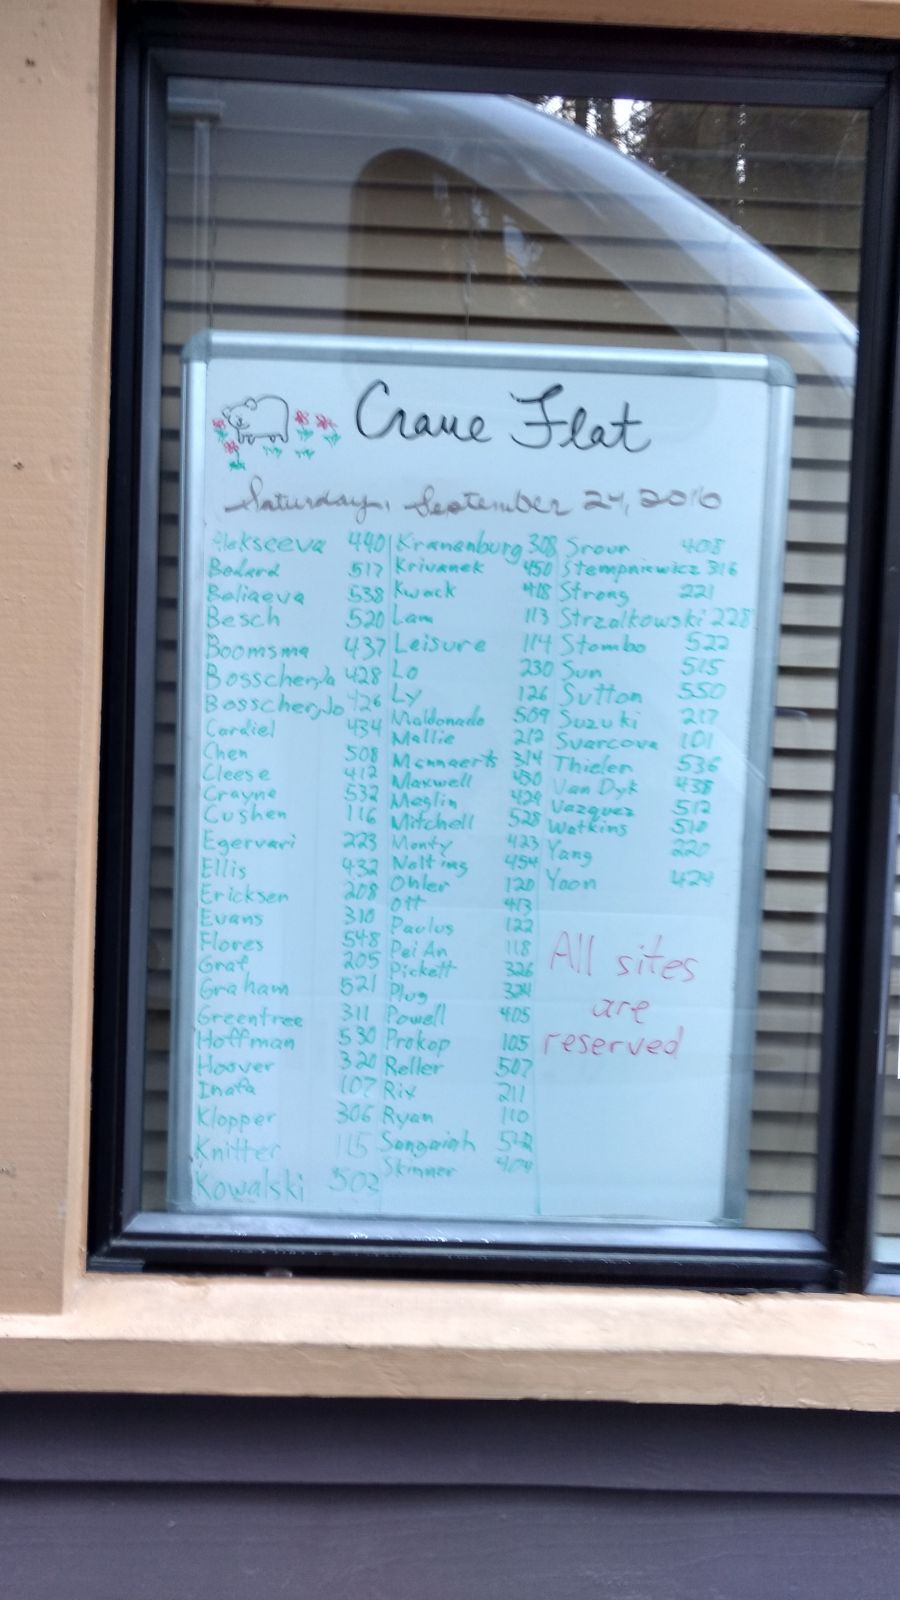 Crane Flat
Saturday, September 24, 2016
Alekseeva 440
Bedard 517
Beliaeva 538
Besch 520
Boomsma 437
Bosscher, Ja 428
Bosscher, Jo 426
Cardiel 434
Chen 508
Cleese 412
Crayne 532
Cushen 116
Egervari 223
Ellis 432
Ericksen 208
Evans 310
Flores 548
Graf 205
Graham 521
Greentree 311
Hoffman 530
Hoover 320
Inafa 107
Klopper 306
Knitter 115
Kowalski 502
Kranenburg 308
Krivanek 450
Kwack 418
Lam 113
Leisure 114
Lo 230
Ly 126
Maldonado 509
Mallie 212
Mennaerts 314
Maxwell 430
Meglin 429
Mitchell 528
Monty 423
Nolting 454
Ohler 120
Ott 413
Paulus 122
Pei An 118
Pickett 326
Plug 324
Powell 405
Prokop 105
Reller 507
Rix 211
Ryan 110
Sangaiah
Skinner 404
Srour 408
Stempniewicz 316
Strong 221
Strzalkowski 228
Stombo 522
Sun 515
Sutton 550
Suzuki 217
Svarcova 101
Thielen 536
Van Dyk 438
Vazquez 512
Watkins 510
Yang 220
Yoon 424
All sites
are
reserved